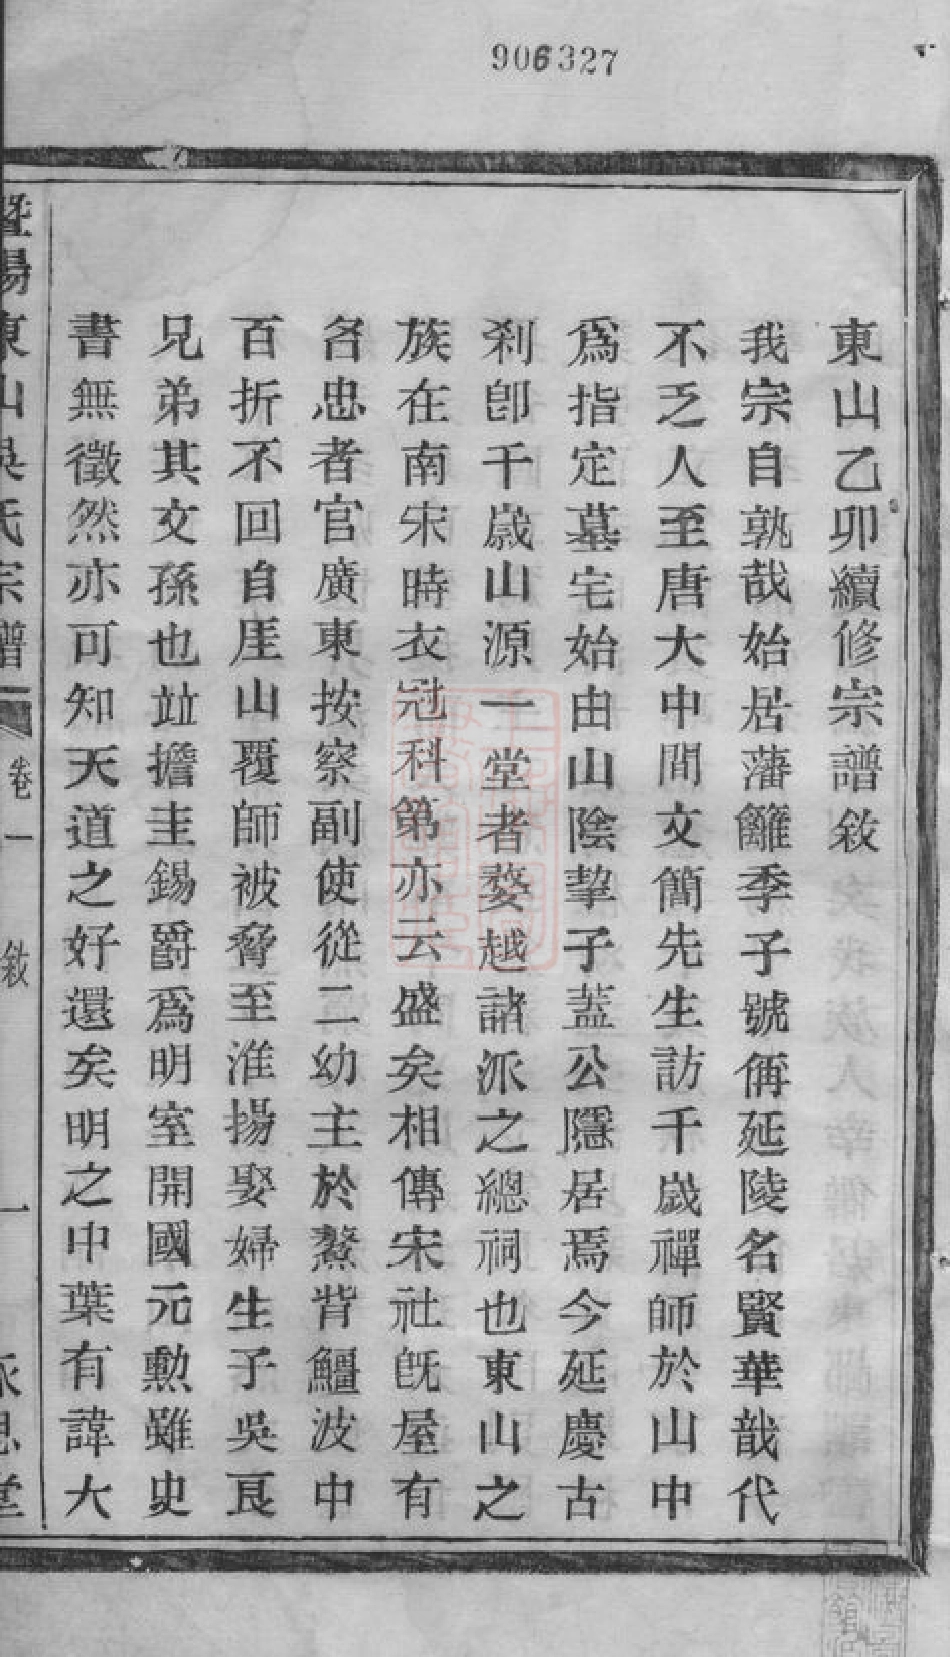 906327
東山乙卯續修宗譜敘
我宗自孰哉始居藩籬季子號稱延陵名賢華戢代
不乏人至唐大中間文簡先生訪千歲禪師於山中
爲指定墓宅始由山陰挈子蓋公隱居焉今延慶古
刹卽千歲山源一堂者婺越諸派之總祠也東山之
族在南宋時衣冠科第亦云盛矣相傳宋社旣屋有
名忠者官廣東按察副使從二幼主於鰲背鱷波中
百折不回自厓山覆師被脅至淮揚娶婦生子吳良
兄弟其文孫也竝擔圭錫爵爲明室開國元勳雖史
書無徵然亦可知天道之好還矣明之中葉有諱大
暨陽東山吳氏宗譜 卷一 敘 一 永思堂